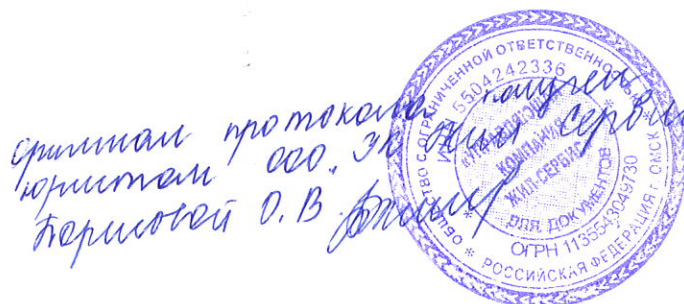 оригинал протокола получен
юристом ООО "УК Жил Сервис
Борисовой О.В.
ОБЩЕСТВО С ОГРАНИЧЕННОЙ ОТВЕТСТВЕННОСТЬЮ
* РОССИЙСКАЯ ФЕДЕРАЦИЯ г. ОМСК *
5504242336
ОГРН 1135543049730
КОМПАНИЯ
ЖИЛ-СЕРВИС
ДЛЯ ДОКУМЕНТОВ